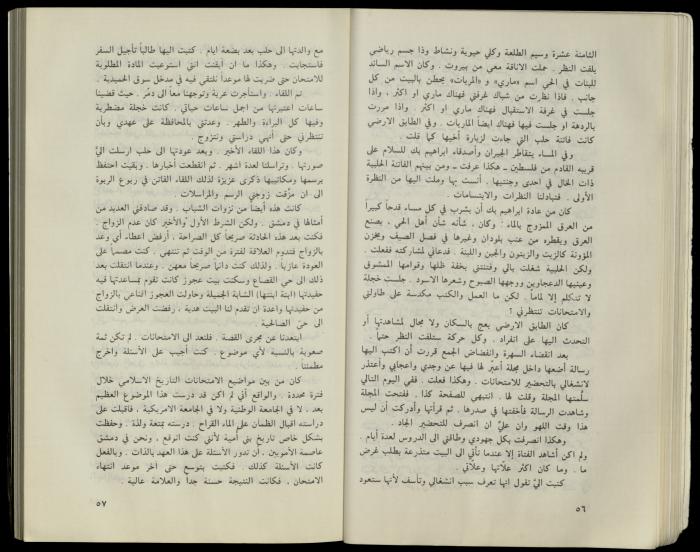 الثامنة عشرة وسيم الطلعة وكلي حيوية ونشاط وذا جسم رياضي
يلفت النظر . حملت الاناقة معي من بيروت . وكان الاسم السائد
للبنات في الحي اسم «ماري» و «المريات» يحطن بالبيت من كل
جانب . فاذا نظرت من شباك غرفتي فهناك ماري او اكثر ، واذا
جلست في غرفة الاستقبال فهناك ماري او اكثر . واذا مررت
بالردهة او جلست فيها فهناك ايضاً الماريات . وفي الطابق الارضي
كانت فاتنة حلب التي جاءت لزيارة أخيها كما قلت .
وفي المساء يتقاطر الجيران وأصدقاء ابراهيم بك للسلام على
قريبه القادم من فلسطين ـ هكذا عرفت ـ ومن بينهم الفاتنة الحلبية
ذات الخال في احدى وجنتيها . أنست بها وملت اليها من النظرة
الأولى . فتبادلنا النظرات والابتسامات .
كان من عادة ابراهيم بك أن يشرب في كل مساء قدحاً كبيراً
من العرق الممزوج بالماء : وكان ، شأنه شأن أهل الحي ، يصنع
العرق ويقطره من عنب بلودان وغيرها في فصل الصيف ويخزن
المؤونة كالزبت والزيتون والجبن واللبنة . فدعاني لمشاركته ففعلت .
ولكن الحلبية شغلت بالي وفتنتني بخفة ظلها وقوامها الممشوق
وعينيها الدعجاوين ووجهها الصبوح وشعرها الاسود . جلست خجلة
لا تتكلم إلا لماماً . لكن ما العمل والكتب مكدسة على طاولتي
والامتحانات تنتظرني ؟
كان الطابق الارضي يعج بالسكان ولا مجال لمشاهدتها أو
التحدث اليها على انفراد . وكل حركة ستلفت النظر حتماً .
بعد انقضاء السهرة وانفضاض الجمع قررت أن اكتب اليها
رسالة أضعها داخل مجلة أعبّر لها فيها عن وجدي واعجابي وأعتذر
لانشغالي بالتحضير للامتحانات . وهكذا فعلت . ففي اليوم التالي
سلّمتها المجلة وقلت لها . انتبهي للصفحة كذا . ففتحت المجلة
وشاهدت الرسالة فأخفتها في صدرها . ثم قرأتها وأدركت أن ليس
هذا وقت اللهو وان عليّ ان انصرف للتحضير الجاد .
وهكذا انصرفت بكل جهودي وطاقتي الى الدروس لعدة أيام .
ولم اكن أشاهد الفتاة إلا عندما تأتي الى البيت متذرعة بطلب غرض
ما . وما كان اكثر علاّتها وعلاّتي .
كتبت اليّ تقول انها تعرف سبب انشغالي وتأسف لأنها ستعود
٥٦
مع والدتها الى حلب بعد بضعة ايام . كتبت اليها طالباً تأجيل السفر
فاستجابت . وهكذا ما ان أيقنت انني استوعبت المادة المطلوبة
للامتحان حتى ضربت لها موعداً نلتقي فيه في مدخل سوق الحميدية .
تم اللقاء . واستأجرت عربة وتوجهنا معاً الى دمّر . حيث قضينا
ساعات اعتبرتها من اجمل ساعات حياتي . كانت خجلة مضطربة
وفيها كل البراءة والطهر . وعدتني بالمحافظة على عهدي وبأن
تنتظرني حتى أنهي دراستي ونتزوج .
وكان هذا اللقاء الأخير . وبعد عودتها الى حلب ارسلت اليّ
صورتها . وتراسلنا لعدة اشهر . ثم انقطعت أخبارها . وبقيت احتفظ
برسمها ومكاتيبها ذكرى عزيزة لذلك اللقاء الفاتن في ربوع الربوة
الى ان مزّقت زوجتي الرسم والمراسلات .
كانت هذه أيضاً من نزوات الشباب . وقد صادقتني العديد من
أمثالها في دمشق . ولكن الشرط الأول والأخير كان عدم الزواج .
فكنت بعد هذه الحادثة صريحاً كل الصراحة ، أرفض اعطاء أي وعد
بالزواج فتدوم العلاقة لفترة من الوقت ثم تنتهي . كنت مصمماً على
العودة عازبا . ولذلك كنت دائماً صريحاً معهن . وعندما انتقلت بعد
ذلك الى حي القصاع وسكنت بيت عجوز كانت تقوم بمساعدتها فيه
حفيدتها (ابنة ابنتها) الشابة الجميلة وحاولت العجوز اقناعي بالزواج
من حفيدتها واعدة ان تقدم لنا البيت هدية ، رفضت العرض وانتقلت
الى حيّ الصالحية .
ابتعدنا عن مجرى القصة . فلنعد الى الامتحانات . لم تكن ثمة
صعوبة بالنسبة لأي موضوع . كنت أجيب على الأسئلة واخرج
مطمئناً .
كان من بين مواضيع الامتحانات التاريخ الاسلامي خلال
فترة محددة . والواقع أني لم اكن قد درست هذا الموضوع العظيم
بعد . لا في الجامعة الوطنية ولا في الجامعة الامريكية . فاقبلت على
دراسته اقبال الظمآن على الماء القراح . درسته بمتعة ولذة . وحفظت
بشكل خاص تاريخ بني أمية لأنني كنت اتوقع ، ونحن في دمشق
عاصمة الأمويين ، ان تدور الأسئلة على هذا العهد بالذات . وبالفعل
كانت الأسئلة كذلك . فكتبت بتوسع حتى آخر موعد انتهاء
الامتحان . فكانت النتيجة حسنة جداً والعلامة عالية .
٥٧